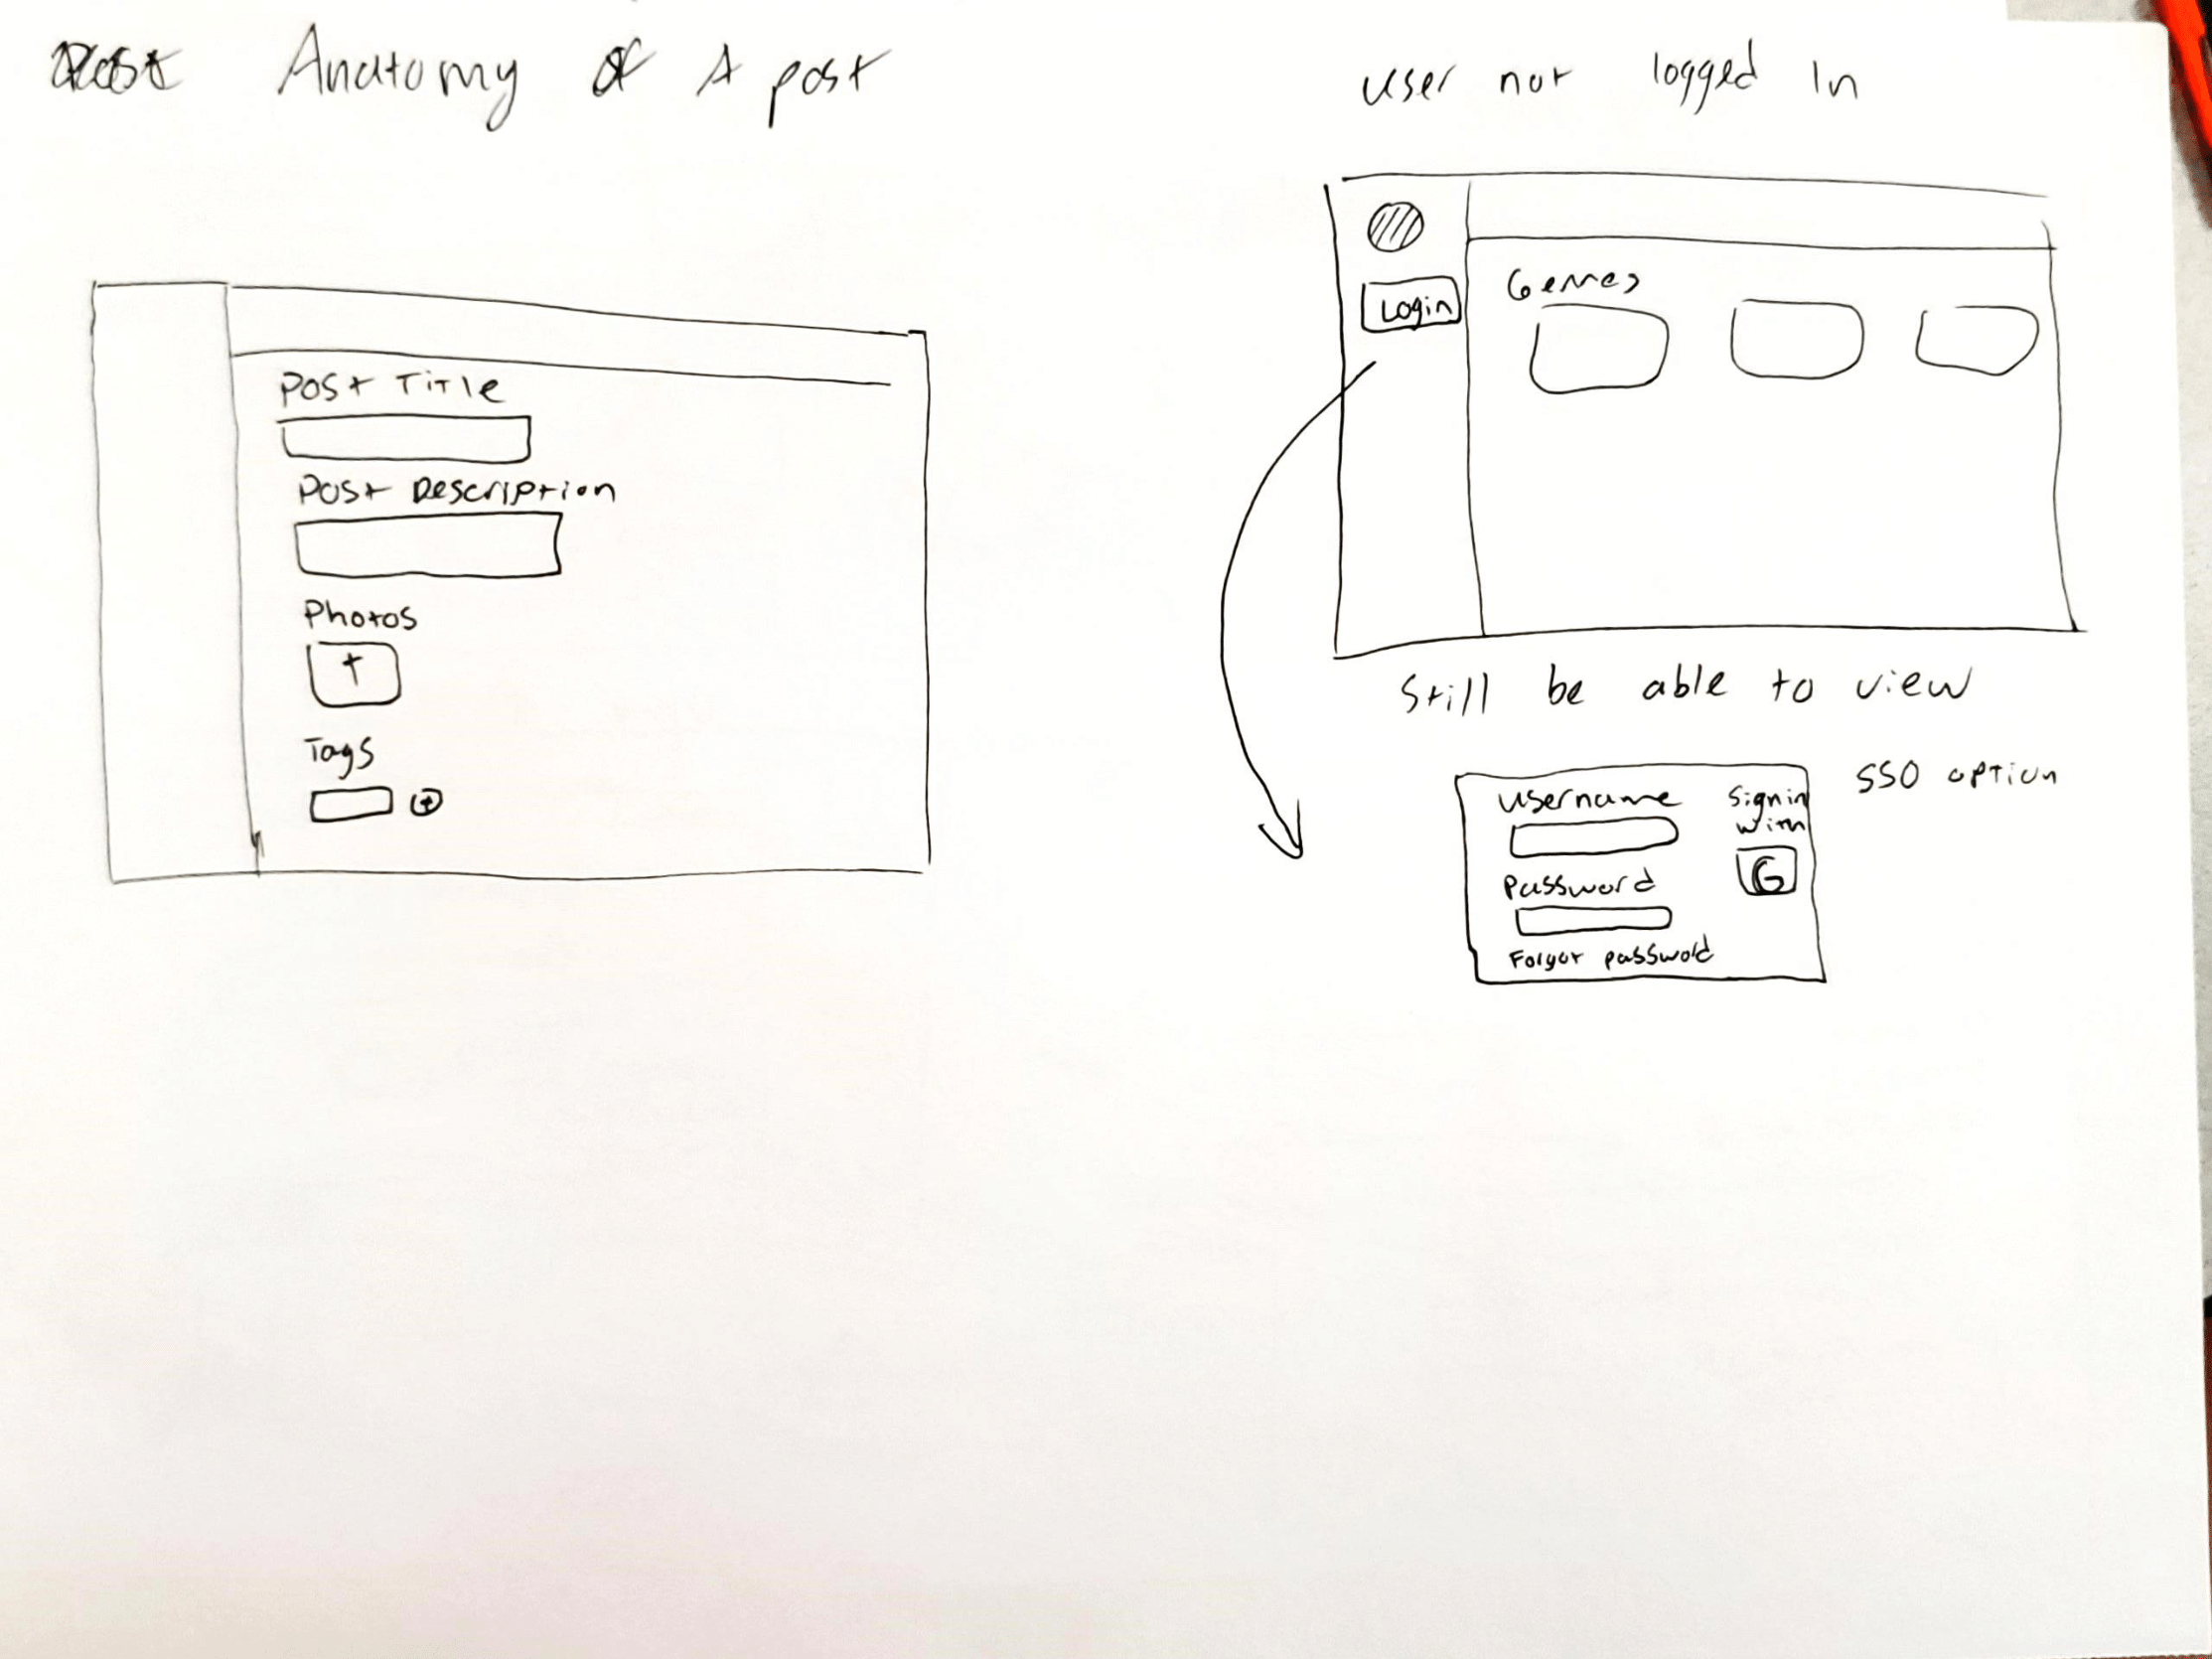 Anatomy of A post
Post Title
Post Description
Photos
+
Tags
+
user not logged In
Login
Genres
Still be able to view
username
Password
Forgot password
Sign in
with
G
SSO option